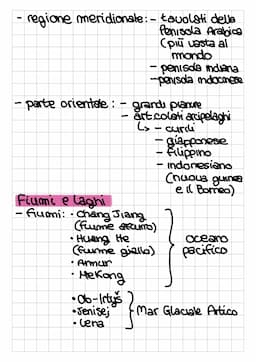 - regione meridionale: - tavolati della
Penisola Arabica
(più vasta al
mondo
- penisola indiana
- penisola indocinese
- parte orientale: - grandi pianure
- articolati arcipelaghi
↳ - curili
- giapponese
- filippino
- indonesiano
(nuova guinea
e il Borneo)
Fiumi e laghi
- fiumi: • Chang Jiang
(fiume azzurro)
• Huang He
(fiume giallo)
• Amur
• Mekong
oceano
pacifico
• Ob-Irtyš
• Jenisej
• Lena
Mar Glaciale Artico